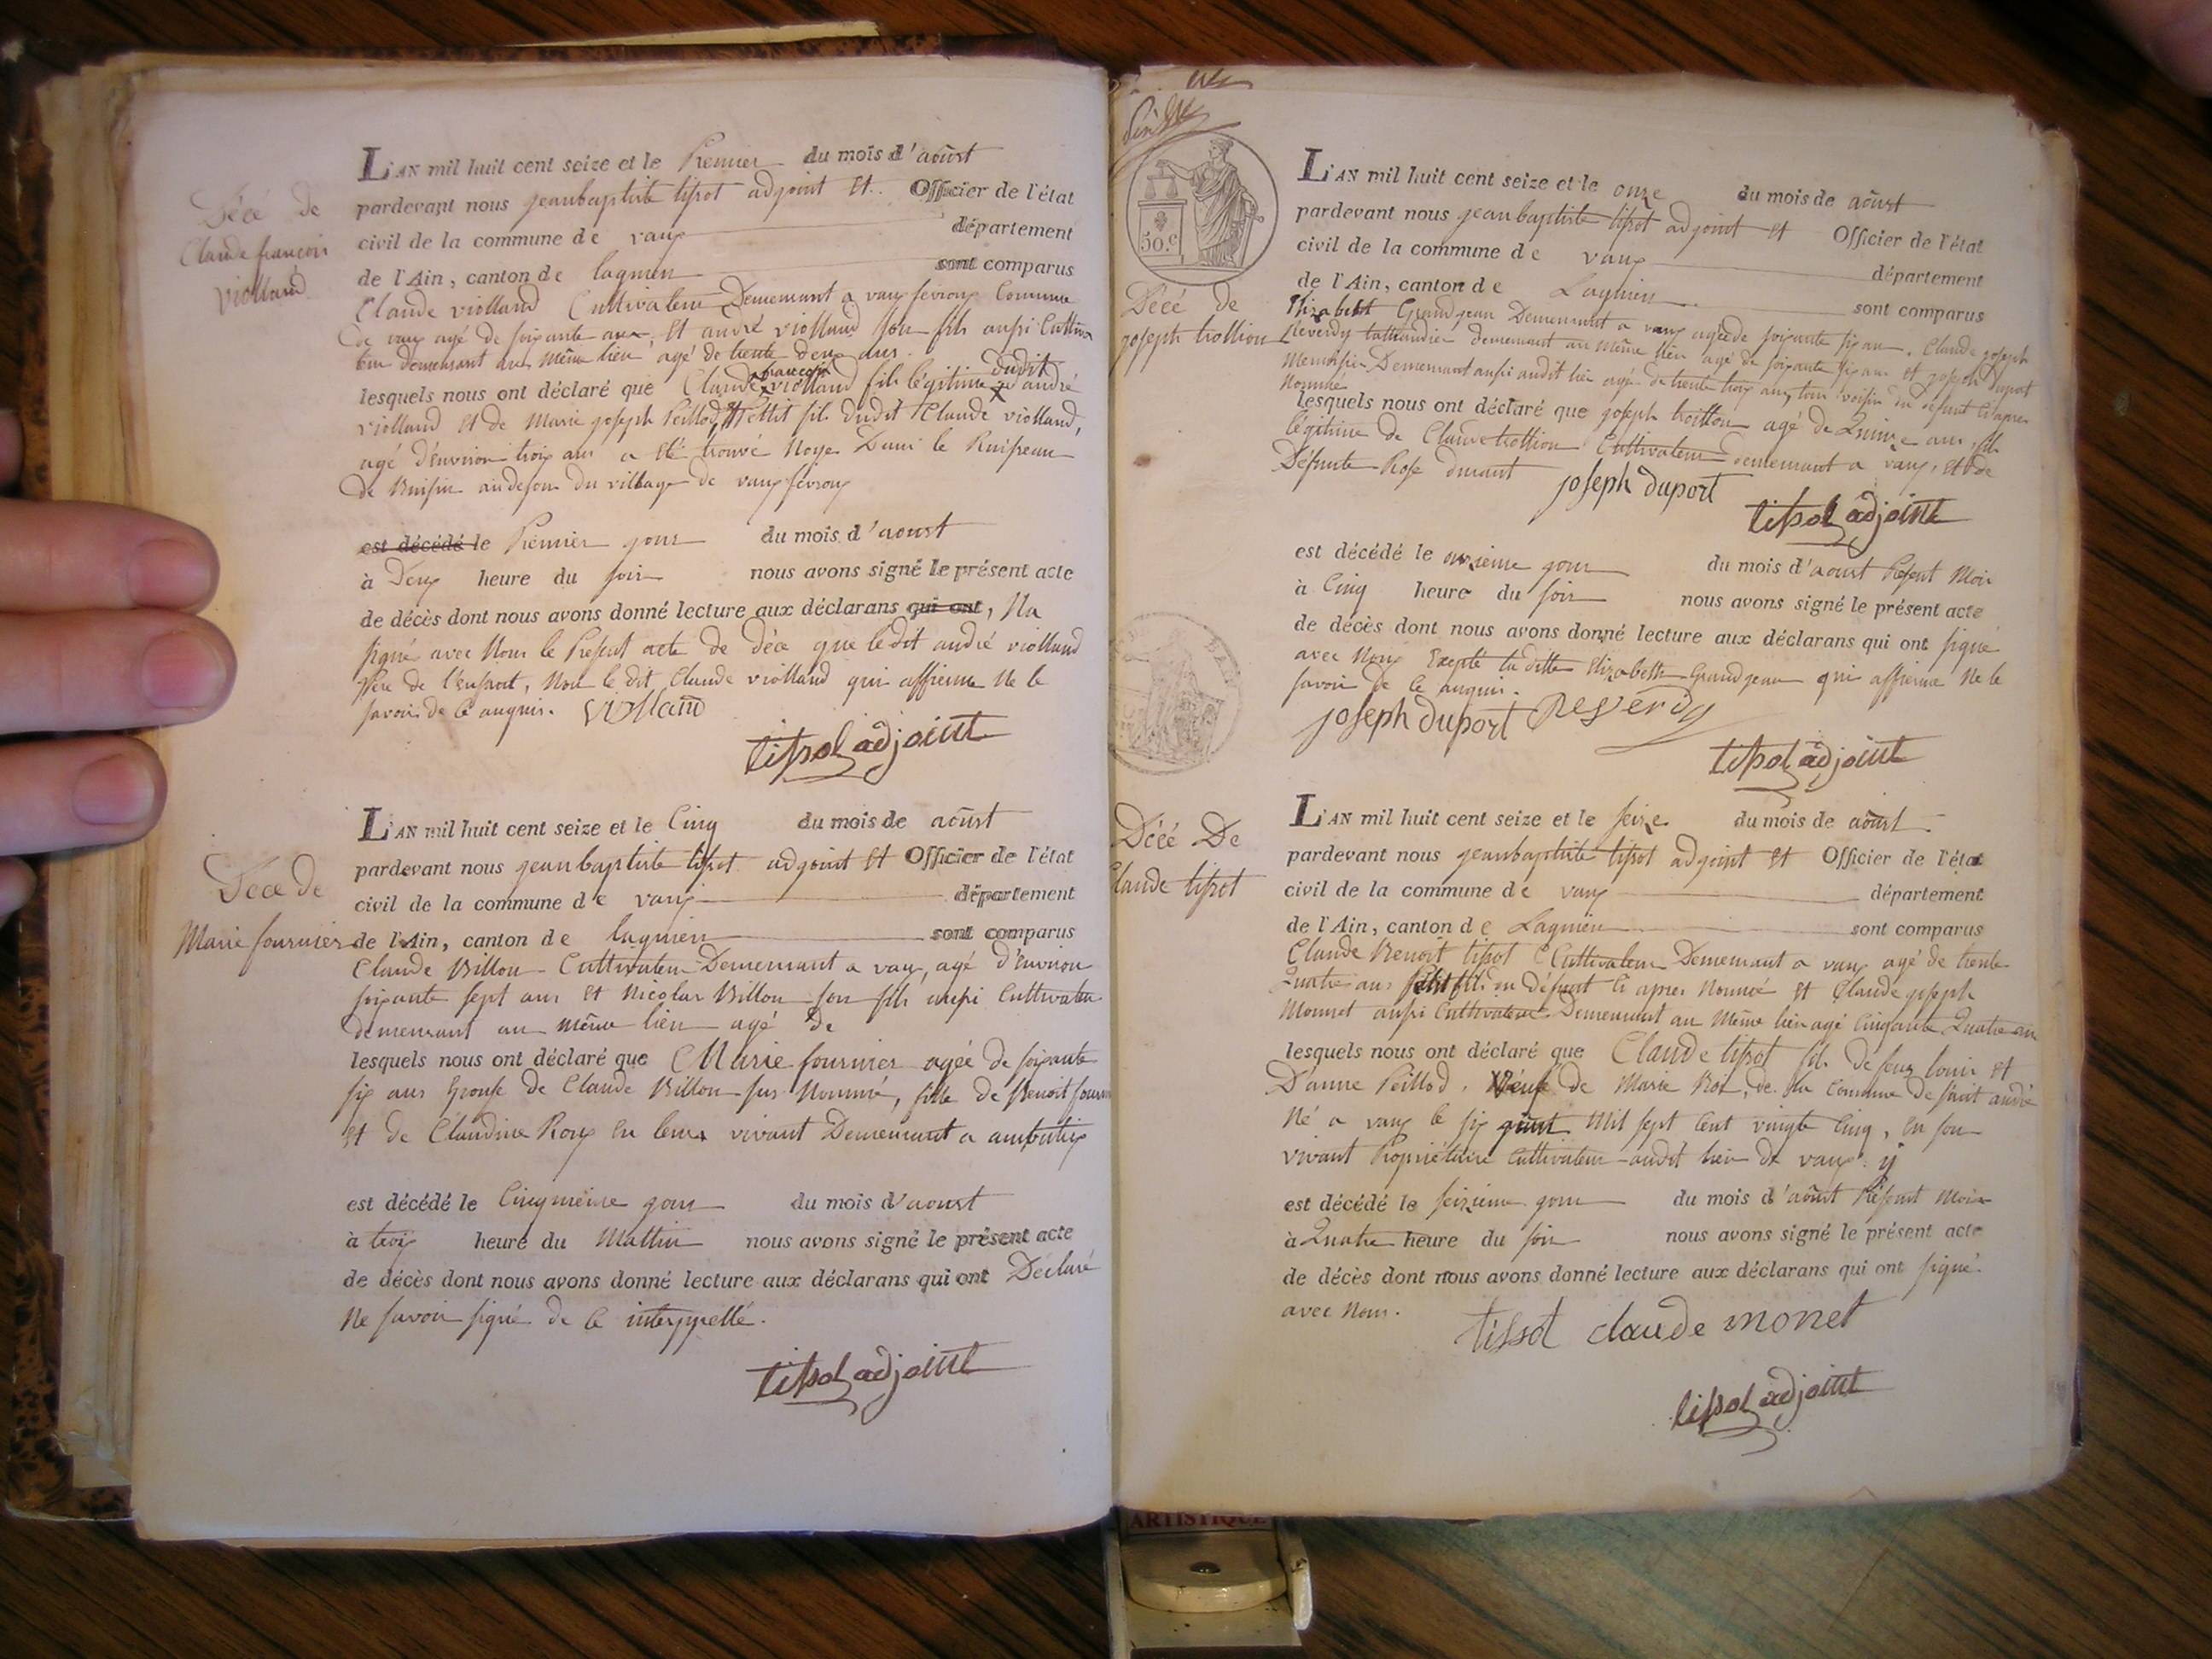 Décé de
Claude françois
violland
L'AN mil huit cent seize et le Premier du mois d'aoûst
pardevant nous jeanbaptiste tissot adjoint Et Officier de l'état
civil de la commune de vaux département
de l'Ain, canton de lagnieu sont comparus
Claude violland Cultivateur Demeurant a vaux fevroux Commune
de vaux agé de soixante ans, Et andré violland son fils aussi Cultiva
teur demeurant au même lieu agé de trente deux ans.
lesquels nous ont déclaré que Claude françois violland fils légitime dudit andré
violland Et de Marie joseph Peillod, Pettit fils dudit Claude violland,
agé d'environ trois ans a été trouvé Noye Dans le Ruisseau
de Buisin audesou du village de vaux fevroux
est décédé le Premier jour du mois d'aoust
à Deux heure du soir nous avons signé le présent acte
de décès dont nous avons donné lecture aux déclarans qui ont, Na
signé avec Nous le Present acte de Déce que le dit andré violland
Père de l'enfant, Non le dit Claude violland qui affirme Ne le
savoir de ce anquis. violland
tissot adjoint
Décé de
Marie fournier
L'AN mil huit cent seize et le Cinq du mois de aoûst
pardevant nous jeanbaptiste tissot adjoint Et Officier de l'état
civil de la commune de vaux département
de l'Ain, canton de lagnieu sont comparus
Claude Billon Cultivateur Demeurant a vaux, agé d'environ
soixante sept ans Et Nicolas Billon son fils aussi Cultivateur
demeurant au même lieu agé de
lesquels nous ont déclaré que Marie fournier agée de soixante
six ans Epouse de Claude Billon sus Nommé, fille de Benoit fourn
Et de Claudine Roux En leurs vivant Demeurant a ambutrix
est décédé le Cinqmeine jour du mois d'aoust
à trois heure du Mattin nous avons signé le présent acte
de décès dont nous avons donné lecture aux déclarans qui ont Déclaré
Ne savoir signé de ce interppellé.
tissot adjoint
50.c
Décé de
joseph trollion
L'AN mil huit cent seize et le onze du mois de aoûst
pardevant nous jeanbaptiste tissot adjoint Et Officier de l'état
civil de la commune de vaux département
de l'Ain, canton de Lagnieu sont comparus
Elizabeth Grandjean Demeurant a vaux agée de soixante six ans, Claude joseph
Reverdy taillandier demeurant au même lieu agé de soixante six ans Et joseph Duport
Menuisier Demeurant aussi audit lieu agé de trente trois ans, tous voisin du défunt Ciapres
Nommé
lesquels nous ont déclaré que joseph trollion agé de Quinze ans fils
légitime de Claude trollion Cultivateur demeurant a vaux, Et de
Défunte Rose durant joseph duport
tissot adjoint
est décédé le onzieme jour du mois d'aoust Present Mois
à Cinq heure du soir nous avons signé le présent acte
de décès dont nous avons donné lecture aux déclarans qui ont signé
avec Nous Excepté la ditte Elizabeth Grandjean qui affirme Ne le
savoir de ce anquis.
joseph duport Reverdy
tissot adjoint
Décé De
Claude tissot
L'AN mil huit cent seize et le seize du mois de aoûst
pardevant nous jeanbaptiste tissot adjoint Et Officier de l'état
civil de la commune de vaux département
de l'Ain, canton de Lagnieu sont comparus
Claude Benoit tissot Cultivateur Demeurant a vaux agé de trente
Quatre ans Petit fils du défunt Ci apres Nommé Et Claude joseph
Monnet aussi Cultivateur Demeurant au Même lieu agé Cinquante Quatre an
lesquels nous ont déclaré que Claude tissot fils de feux louis Et
D'anne Peillod, Veuf de Marie Roi, de la Commune de saint andré
Né a vaux le six Mil sept Cent vingte Cinq, En son
vivant Propriétaire Cultivateur audit lieu de vaux. y
est décédé le seizieme jour du mois d'aoûst Présent Mois
à Quatre heure du soir nous avons signé le présent acte
de décès dont nous avons donné lecture aux déclarans qui ont signé
avec Nous. tissot claude monet
tissot adjoint
ARTISTIQUE